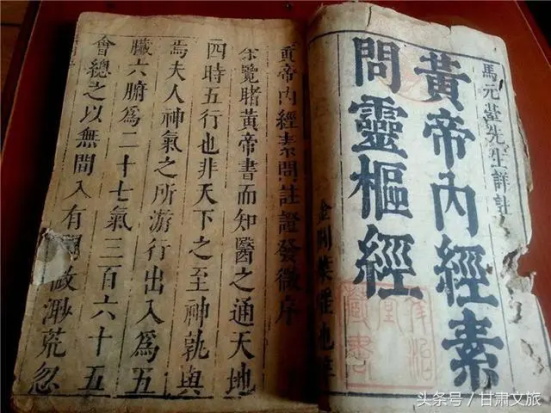 馬元薹先生詳註
黃帝內經素
問靈樞經
藏書
黃帝內經素問註證發微序
余覽睹黃帝書而知醫之通天地
四時五行也非天下之至神孰與
焉夫人神氣之所游行出入為五
臟六腑為二十七氣三百六十五
會總之以無間入有間微渺荒忽
头条号 / 甘肃文旅